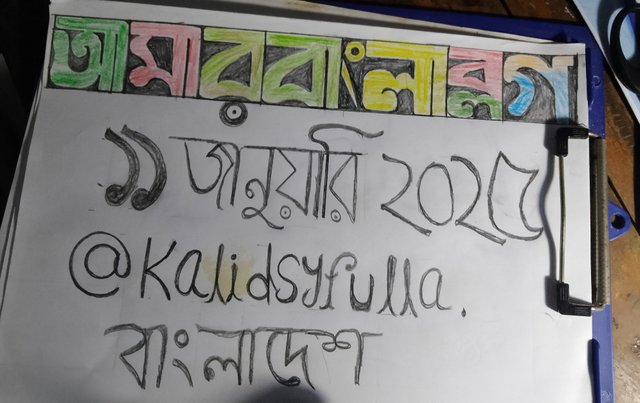 আমার বাংলা ব্লগ
১১ জানুয়ারি ২০২৫
@Kalidsyfulla.
বাংলাদেশ